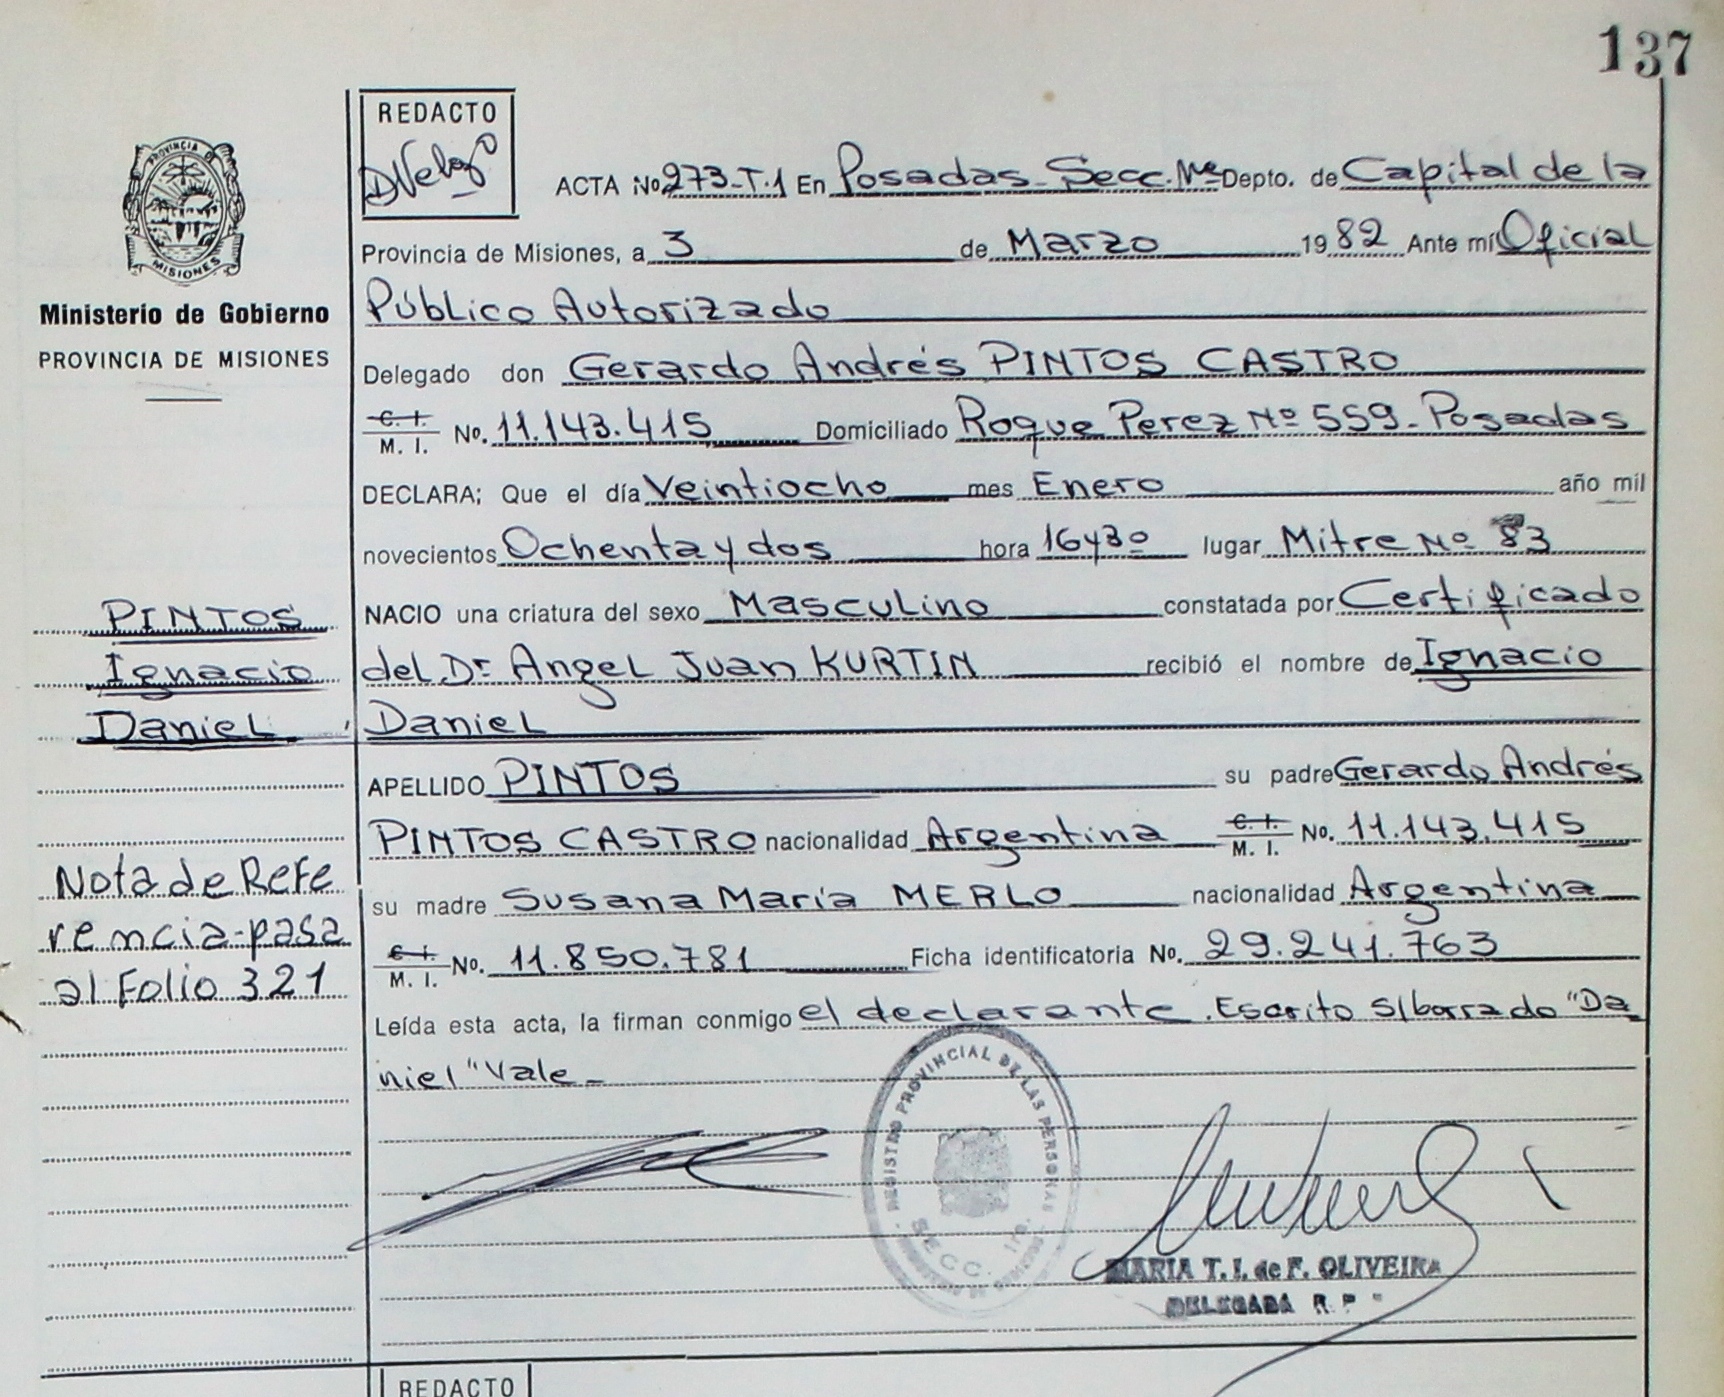 137
REDACTO
DVelozo
PROVINCIA D
MISIONES
Ministerio de Gobierno
PROVINCIA DE MISIONES
ACTA No 273-T.1 En Posadas - Secc. Depto. de Capital de la
Provincia de Misiones, a 3 de Marzo 1982 Ante mi Oficial
Público Autorizado
Delegado don Gerardo Andrés PINTOS CASTRO
C. I.
M. I. No. 11.143.415 Domiciliado Roque Perez Nº 559 - Posadas
DECLARA; Que el día Veintiocho mes Enero año mil
novecientos Ochenta y dos hora 16y30 lugar Mitre Nº 83
NACIO una criatura del sexo Masculino constatada por Certificado
del Dr Angel Juan KURTIN recibió el nombre de Ignacio
Daniel
APELLIDO PINTOS su padre Gerardo Andrés
PINTOS CASTRO nacionalidad Argentina C. I. M. I. No. 11.143.415
su madre Susana María MERLO nacionalidad Argentina
C. I. M. I. No. 11.850.781 Ficha identificatoria No. 29.241.763
Leída esta acta, la firman conmigo el declarante. Escrito S/borrado "Da
niel" Vale-
PINTOS
Ignacio
Daniel
Nota de Refe
rencia-pasa
al Folio 321
REGISTRO PROVINCIAL DE LAS PERSONAS
SECC. 1a.
MARIA T. I. de F. OLIVEIRA
DELEGADA R. P.
REDACTO